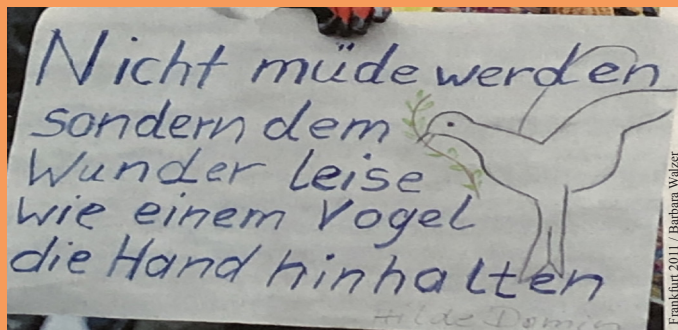 Nicht müde werden
sondern dem
Wunder leise
wie einem Vogel
die Hand hinhalten
Hilde Domin
Frankfurt 2011 / Barbara Walzer